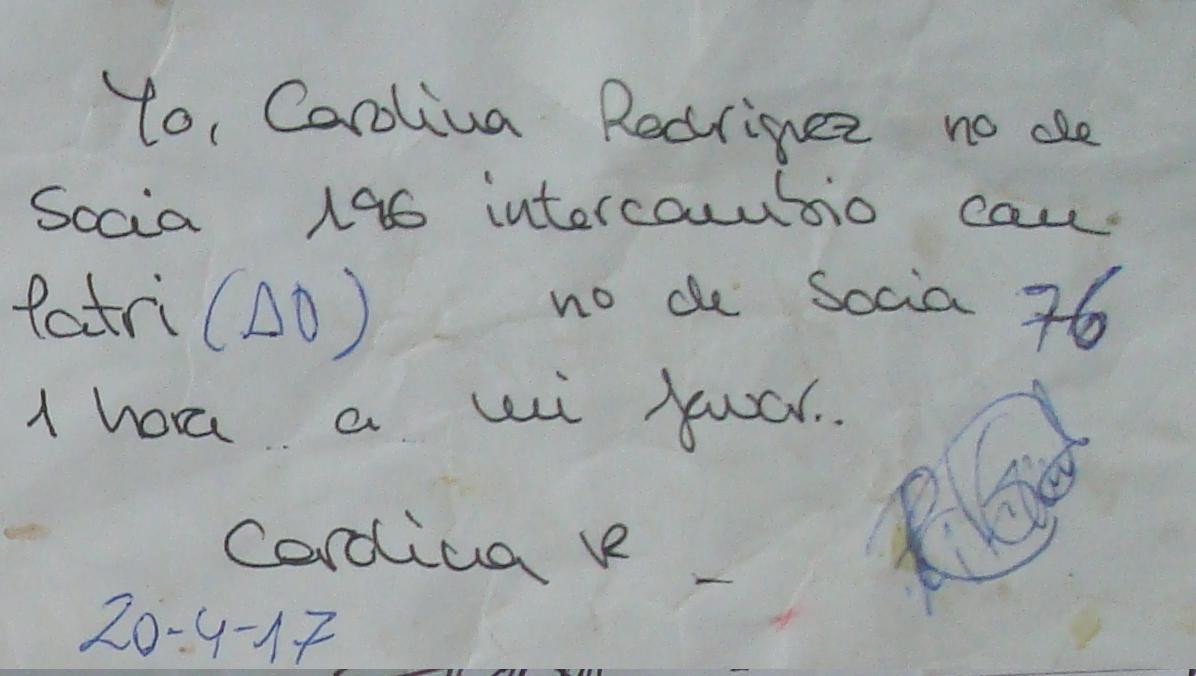 Yo, Carolina Rodriguez no de
Socia 196 intercambio con
Patri (AD) no de Socia 76
1 hora a mi favor..
Carolina R
20-4-17